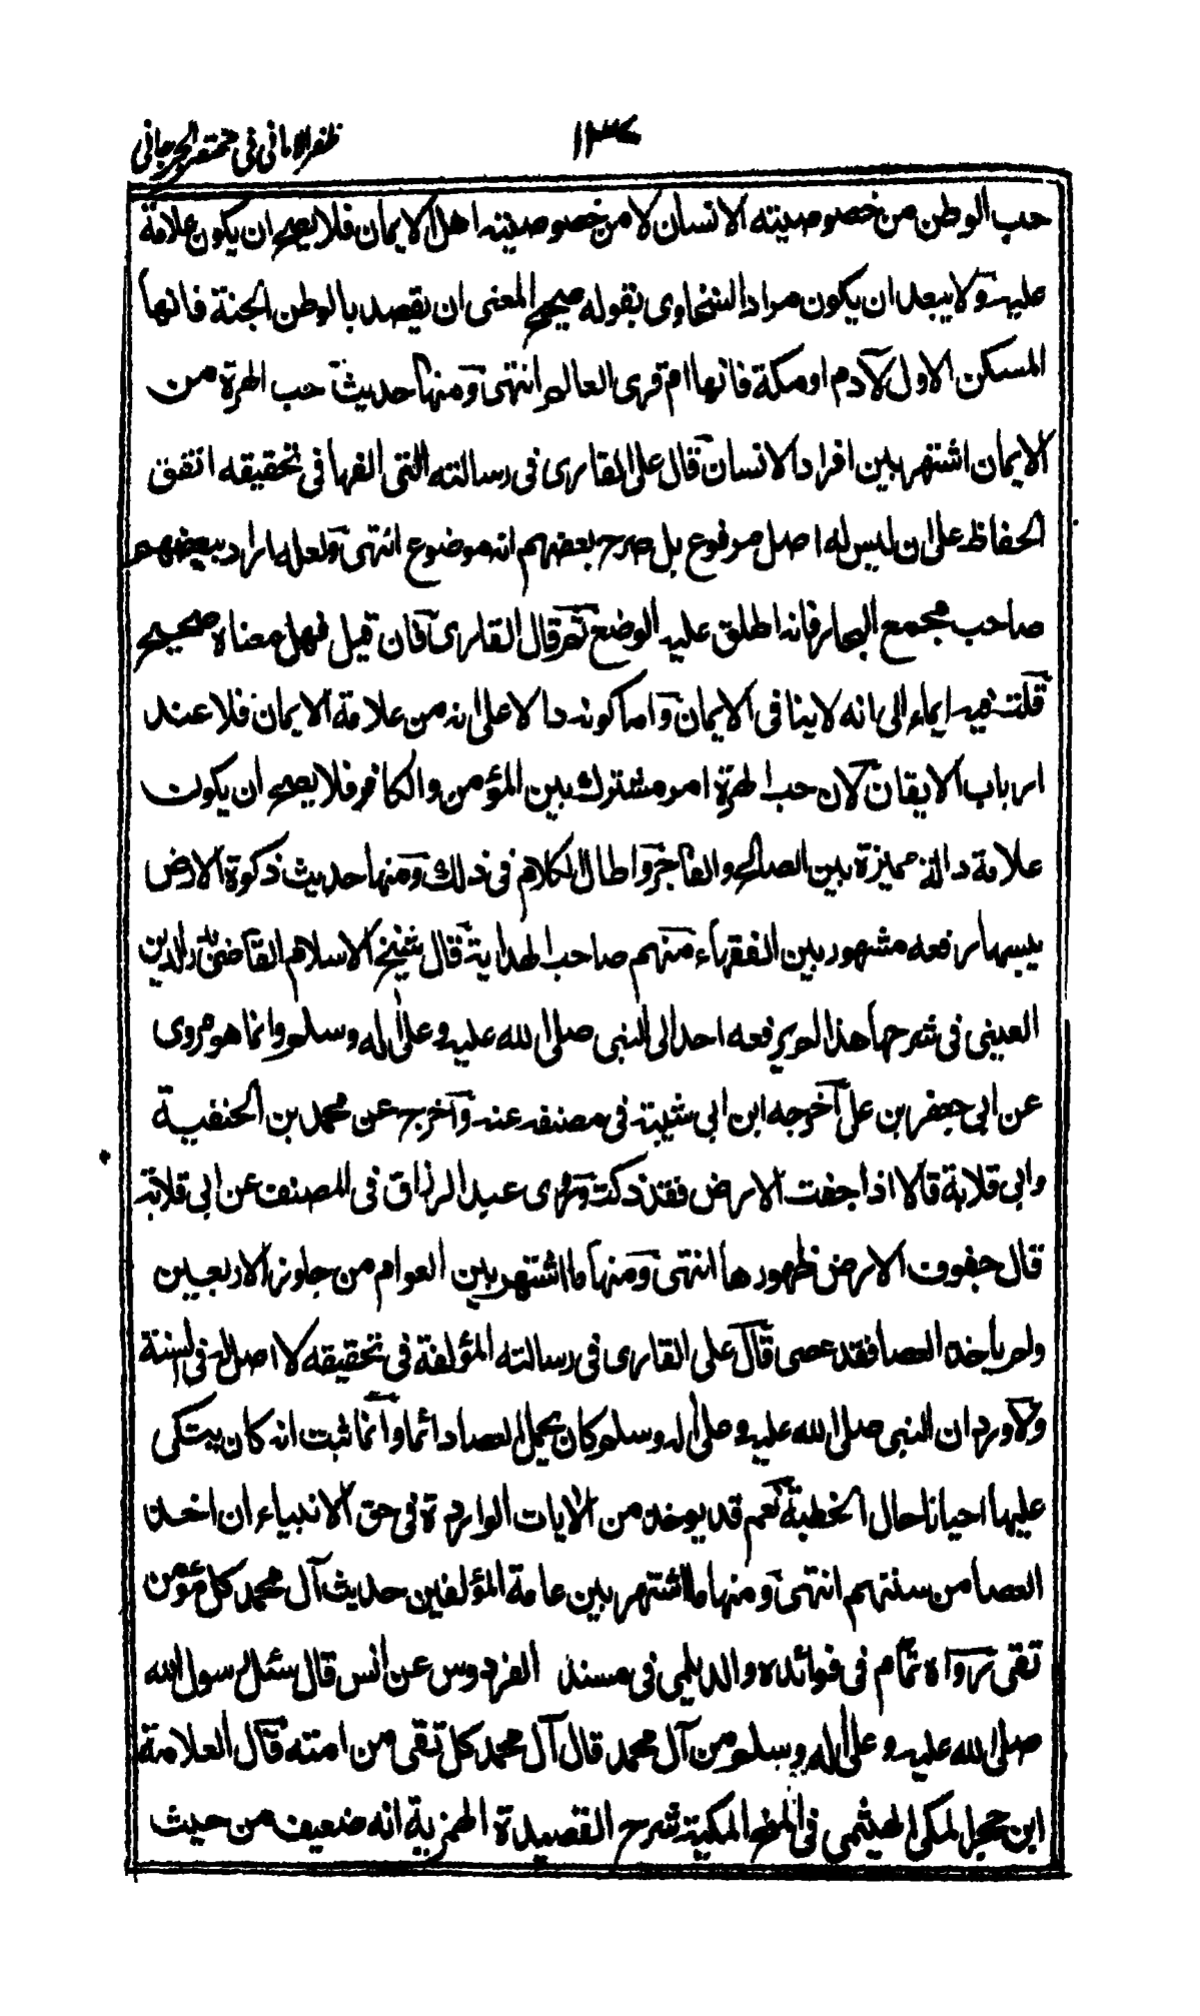 ظفر الامانی فی مختصر الجرجانی
١٣٧
حب الوطن من خصوصيته الانسان لا من خصوصيته اهل الايمان فلا يصح ان يكون علامة
عليه ولا يبعد ان يكون مراد السخاوى بقوله صحيح المعنى ان يقصد بالوطن الجنة فانها
المسكن الاول لآدم او مكة فانها ام قرى العالم انتهى ومنها حديث حب الهرة من
الايمان اشتهر بين افراد الانسان قال على القارى فى رسالته التى الفها فى تحقيقه اتفق
الحفاظ على ان ليس له اصل مرفوع بل صرح بعضهم انه موضوع انتهى ولعله اراد ببعضهم
صاحب مجمع البحار فانه اطلق عليه الوضع ثم قال القارى فان قيل فهل معناه صحيح
قلت فيه ايماء الى انه لا ينافى الايمان واما كونه دالا على انه من علامة الايمان فلا عند
ارباب الايقان لان حب الهرة امر مشترك بين المؤمن والكافر فلا يصح ان يكون
علامة دالة مميزة بين الصالح والفاجر واطال الكلام فى ذلك ومنها حديث ذكوة الارض
يبسها رفعه مشهور بين الفقهاء منهم صاحب الهداية قال شيخ الاسلام القاضى بدر الدين
العينى فى شرحها هذا لم يرفعه احد الى النبى صلى الله عليه وعلى اله وسلم وانما هو مروى
عن ابى جعفر بن على اخرجه ابن ابى شيبة فى مصنفه عنه واخرج عن محمد بن الحنفية
وابى قلابة قالا اذا جفت الارض فقد ذكت وروى عبد الرزاق فى المصنف عن ابى قلابة
قال جفوف الارض ظهورها انتهى ومنها ما اشتهر بين العوام من جاوز الاربعين
ولم يأخذ العصا فقد عصى قال على القارى فى رسالته المؤلفة فى تحقيقه لا اصل له فى السنة
ولا ورد ان النبى صلى الله عليه وعلى اله وسلم كان يحمل العصا دائما وانما ثبت انه كان يتكى
عليها احيانا حال الخطبة نعم قد يوخذ من الايات الواردة فى حق الانبياء ان اخذ
العصا من سنتهم انتهى ومنها ما اشتهر بين عامة المؤلفين حديث آل محمد كل مؤمن
تقى رواه تمام فى فوائده والديلمى فى مسند الفردوس عن انس قال سئل رسول الله
صلى الله عليه وعلى اله وسلم من آل محمد قال آل محمد كل تقى من امته قال العلامة
ابن حجر المكى الهيثمى فى المنح المكية شرح القصيدة الهمزية انه ضعيف من حيث